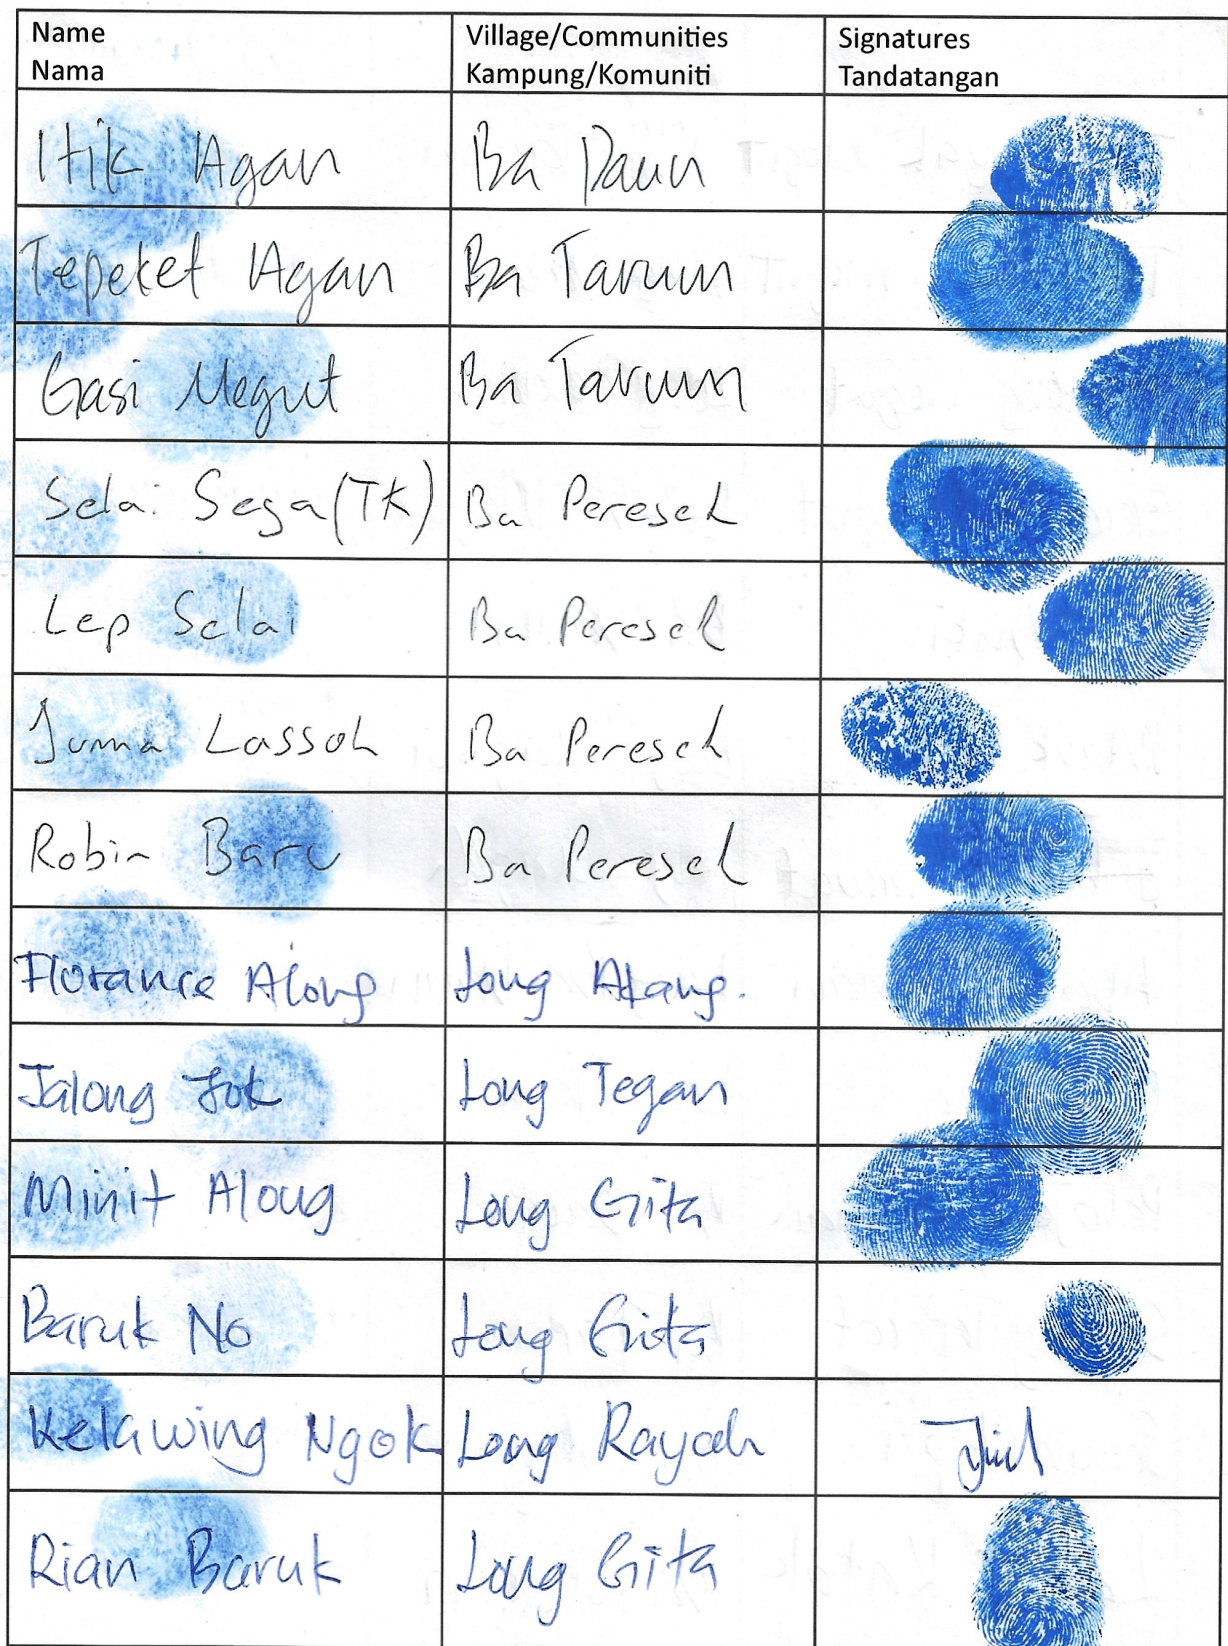 Name Village/Communities Signatures
Nama Kampung/Komuniti Tandatangan
Itik Agan Ba Daun
Tepeket Agan Ba Tarum
Gasi Megut Ba Tarum
Selai Sega (TK) Ba Pereseh
Lep Selai Ba Peresek
Juma Lassoh Ba Pereseh
Robin Baru Ba Peresek
Florance Along Long Akang.
Jalong Jok Long Tegan
Minit Along Long Gita
Baruk No Long Gita
Kelawing Ngok Long Rayah
Rian Baruk Long Gita